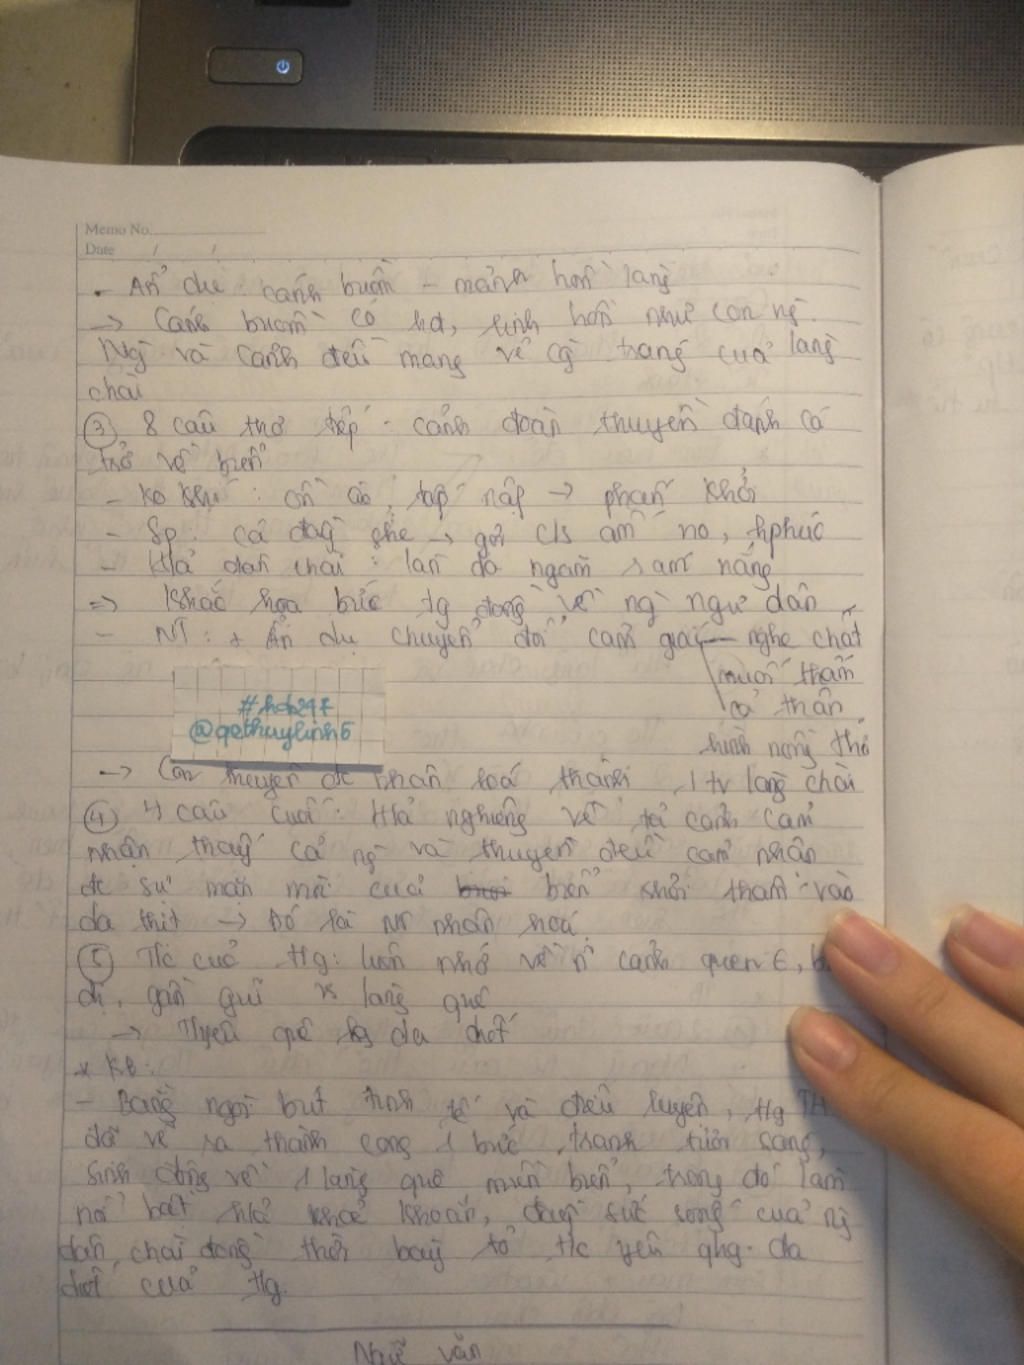 Memo No.
Date / /
- Ẩn dụ: cánh buồm - mảnh hồn làng
-> Cánh buồm có linh hồn như con ng.
Ng và cảnh đều mang vẻ trang của làng
chài
③ 8 câu thơ tiếp: cảnh đoàn thuyền đánh cá
trở về biển
- ko khí: ồn ào, tấp nập -> phấn khởi
- Sp: cá đầy ghe -> gợi c/s ấm no, hphúc
- H/ả dân chài: làn da ngăm rám nắng
=> Khắc họa bức tg về ng ngư dân
- NT: + Ẩn dụ chuyển đổi cảm giác - nghe chất
muối thấm
cả thân
hình nồng thở
#hds247
@qethuylinh6
-> Con thuyền đc nhân hoá thành 1 tv làng chài
④ 4 câu cuối: H/ả nghiêng về tả cảnh cảm
nhận thấy cả ng và thuyền đều cảm nhận
đc sự mặn mòi của biển khơi thấm vào
da thịt -> Đó là NT nhân hoá.
⑤ T/c của t/g: luôn nhớ về n cảnh quen €,
dị, gần gũi làng quê
-> T/yêu quê hg da diết
* KB:
- Bằng ngòi bút tinh tế và điêu luyện, t/g TH
đã vẽ ra thành công 1 bức tranh tươi sáng,
sinh động về 1 làng quê miền biển, trong đó làm
nổi bật h/ả khoẻ khoắn, đầy sức sống của ng
dân chài đồng thời bày tỏ t/c yêu qhg da
diết của t/g.
Ngữ văn